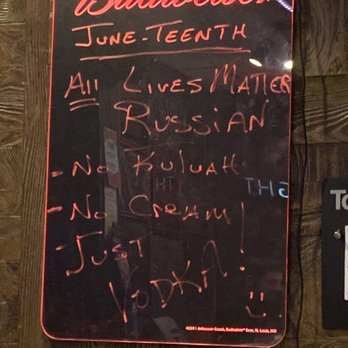 Budweiser
JUNE-TEENTH
All LIVES MATTER
RUSSIAN
- No KULUAH
- No CREAM!
- JUST
VODKA!
:)
©2011 Anheuser-Busch, Budweiser® Beer, St. Louis, MO
To